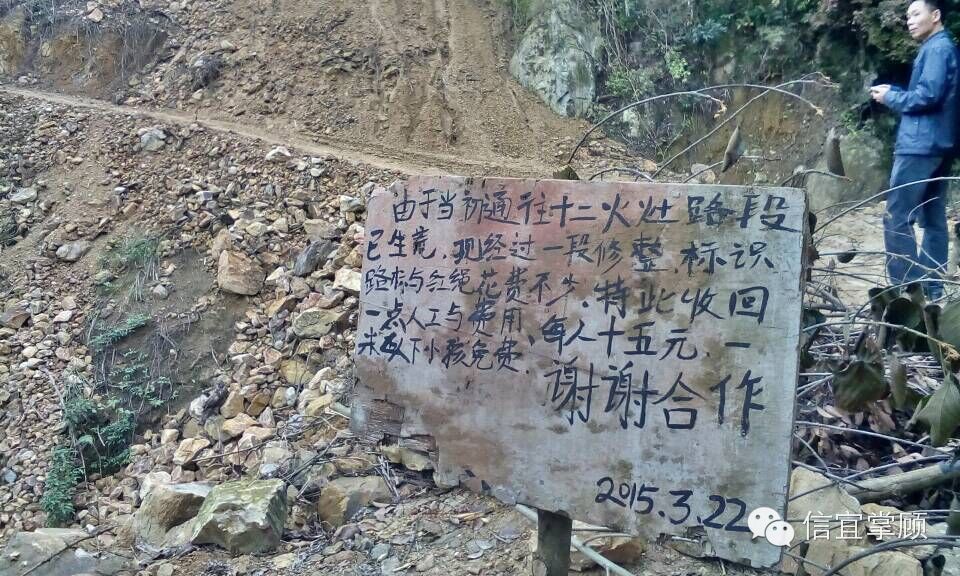 由于当初通往十二火灶路段
已生荒，现经过一段修整，标识
路标与红绳花费不少，特此收回
一点人工与费用，每人十五元，一
米以下小孩免费，
谢谢合作
2015.3.22
信宜掌顾